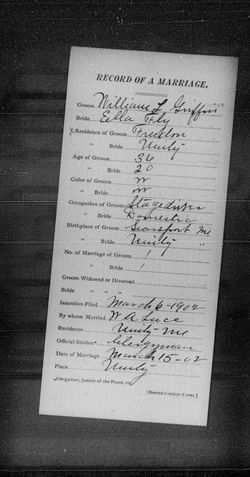 RECORD OF A MARRIAGE.
Groom William L Griffin
Bride Ella Fly
Residence of Groom Freedom
" " Bride Unity "
Age of Groom 36
" " Bride 20
Color of Groom W
" " Bride W
Occupation of Groom Stagedriver
" " Bride Domestic
Birthplace of Groom Searsport Me
" " Bride Unity "
No. of Marriage of Groom 1
" " Bride 1
Groom Widowed or Divorced
Bride " "
Intention Filed March 6-1902
By whom Married W A Luce
Residence Unity-Me
Official Station Clergyman
Date of Marriage March 15-02
Place Unity
*Clergyman, Justice of the Peace, etc.